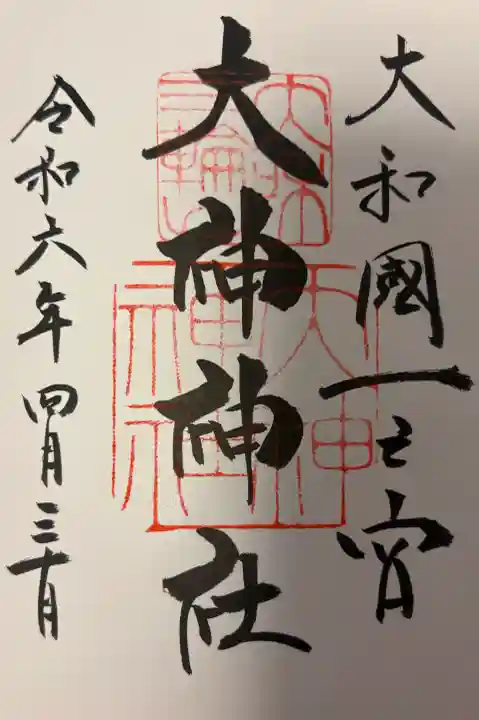 大和國一之宮
大神神社
令和六年四月三十日
大神神社